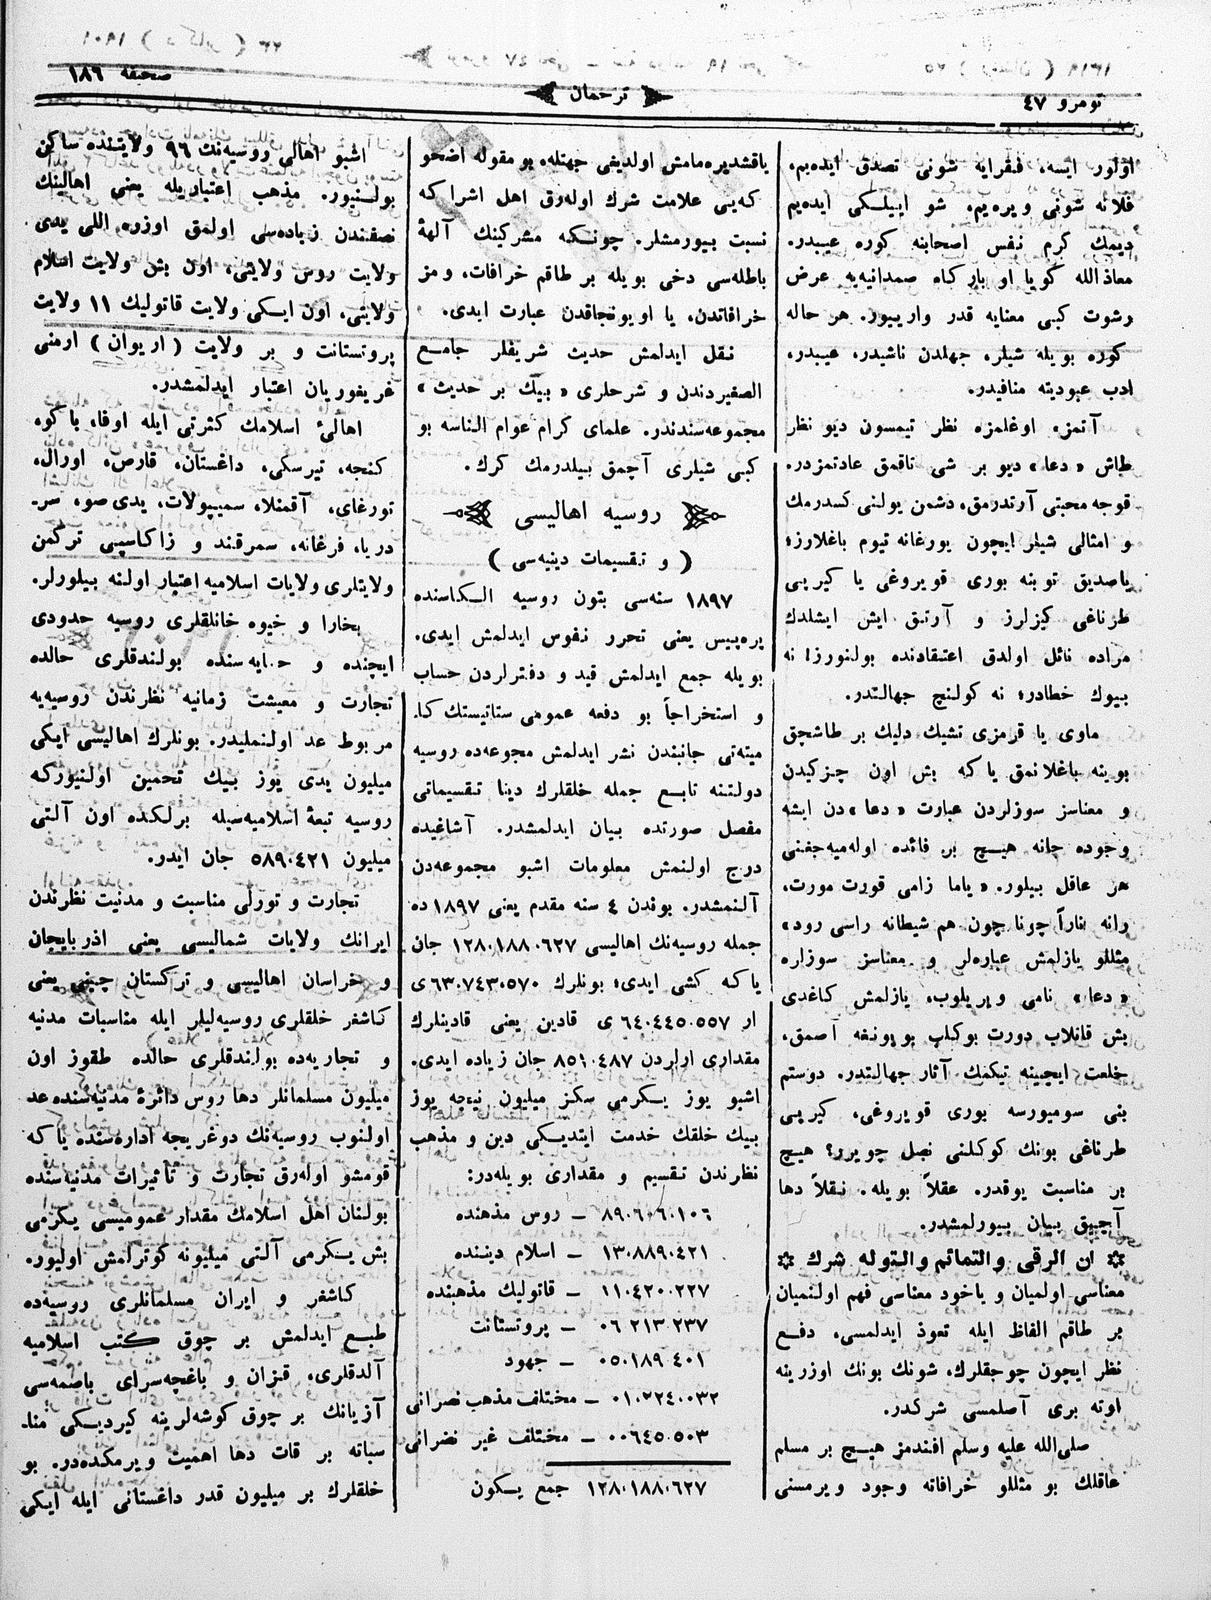 نومرو ٤٧
ترجمان
صحیفه ١٨٦
اولور ایسه، فقرایه شونی تصدق ایده‌یم،
فلانه شونی ویره‌یم، شو اییلـکی ایده‌یم
دیمك كرم نفس اصحابنه كوره عیبدر.
معاذالله كویا او بارگاه صمدانیه‌یه عرض
رشوت كبی معنایه قدر واریـیور. هر حاله
كوره بویله شیلر، جهلدن ناشیدر، عیبدر،
ادب عبودیته منافیدر.
آتمزه اوغلمزه نظر تیمسون دیو نظر
طاش «دعا» دیو بر شی تاقمق عادتمزدر.
قوجه محبتی آرتدرمق، دشمن یولنی كسدرمك
و امثالی شیلر ایچون یورغانه تیوم باغلارز،
یاصدیق توبنه بوری قویروغی یا كیرپی
طرناغی كیزلرز و آرتـق ایش ایشلدك
مراده نائل اولدق اعتقادنده بولنورز! نه
بیوك خطادر! نه كولنچ جهالتدر.
ماوی یا قرمزی تشیك دلیك بر طاشچق
بوینه باغلانمق یاكه بش اون چـزكیدن
و معناسز سوزلردن عبارت «دعا»دن ایشه
وجوده جانه هیـچ بر فائده اوله‌میه‌جغنی
هر عاقل بیلور. «یاما زامی قورت مورت،
رانه ناراً چونا چون هم شیطانه راسی رود»
مثللو یازلمش عباره‌لر و معناسز سوزلره
«دعا» نامی ویریلوب، یازلمش كاغدی
بش قاتلاب دورت بوكلپ بویونغه آصمق،
خلعت ایچینه تیكمك آثار جهالتدر. دوستم
بنی سومیورسه بوری قویروغی، كیرپی
طرناغی بونك كوكلنی نصل چویرر؟ هیـچ
بر مناسبت یوقدر. عقلاً بویله. نـقلاً دها
آچیق بیان بیورلمشدر.
* ان الرقی والتمائم والتوله شرك *
معناسی اولمیان و یاخود معناسی فهم اولنمیان
بر طاقم الفاظ ایله تعوذ ایدلمسی، دفـع
نظر ایچون چوجقلرك، شونك بونك اوزرینه
اوته بری آصلمسی شركدر.
صلی‌الله علیه وسلم افندمز هیـچ بر مسلم
عاقلك بو مثللو خرافاته وجود ویرمسنی
یاقشدیره‌مامش اولدیغی جهتله، بو مقوله اضحو
كه‌یی علامت شرك اوله‌رق اهل اشراكه
نسبت بیورمشلر. چونـكه مشركینك آلهۀ
باطله‌سی دخی بویله بر طاقم خرافات، ومز
خرافاتدن، یا اویونجاقدن عبارت ایدی.
نـقل ایدلمش حدیث شریفلر جامـع
الصغیردندن و شرحلری «بیـك بر حدیث»
مجموعه‌سندندر. علمای كرام عوام الناسه بو
كبی شیلری آچمق بیلدرمك كرك.
روسیه اهالیسی
(و تـقسیمات دینیه‌سی)
١٨٩٧ سنه‌سی بتون روسیه الـكاسنده
پره‌پیس یعنی تحرر نفوس ایدلمش ایدی.
بویله جمع ایدلمش قید و دفترلردن حساب
و استخراجاً بو دفعه عمومی ستاتیستك كـا
میته‌تی جانبندن نشر ایدلمش مجموعه‌ده روسیه
دولتنه تابـع جمله خلقلرك دینا تـقسیماتی
مفصل صورتده بیان ایدلمشدر. آشاغیده
درج اولنمش معلومات اشبو مجموعه‌دن
آلنمشدر. بوندن ٤ سنه مقدم یعنی ١٨٩٧ ده
جمله روسیه‌نك اهالیسی ١٢٨،١٨٨،٦٢٧ جان
یاكه كشی ایدی؛ بونلرك ٦٣،٧٤٣،٥٧٠ ی
ار ٦٤،٤٤٥،٥٥٧ ی قادین یعنی قادینلرك
مقداری اولردن ٨٥١،٤٨٧ جان زیاده ایدی.
اشبو یوز یـكرمی سكـز میلیون نیچه یوز
بیـك خلقك خدمت ایتدیـكی دین و مذهب
نظرندن تـقسیم و مقداری بویله‌در:
٨٩،٦٠٦،١٠٦ ـ روس مذهنده
١٣،٨٨٩،٤٢١ ـ اسلام دیننده
١١،٤٢٠،٢٢٧ ـ قاتولیك مذهبنده
٠٦،٢١٣،٢٣٧ ـ پروتستانت
٠٥،١٨٩،٤٠١ ـ جهود
٠١،٢٢٤،٠٣٢ ـ مختلف مذهب نصرانی
٠٠٦٤٥،٥٠٣ ـ مختلف غیر نصرانی
١٢٨،١٨٨،٦٢٧ جمع یـكون
اشبو اهالی روسیه‌نك ٩٦ ولایتنده ساكن
بولنیور. مذهب اعتباریله یعنی اهالینك
نصفندن زیاده‌سی اولمق اوزره اللی یدی
ولایت روس ولایتی، اون بش ولایت اسلام
ولایتی، اون ایـكی ولایت قاتولیك ١١ ولایت
پروتستانت و بر ولایت (اریوان) ارمنی
غریغوریان اعتبار ایدلمشدر.
اهالیٔ اسلامك كثرتی ایله اوفا، باكو،
كنجه، تیرسكی، داغستان، قارص، اورال،
تورغای، آقمنلا، سمیپولات، یدی صو، سرـ
دریا، فرغانه، سمرقند و زاكاسپی تركمن
ولایتلری ولایات اسلامیه اعتبار اولنه بیلورلر.
بخارا و خیوه خانلقلری روسیه حدودی
ایچنده و حمایه‌سنده بولندقلری حالده
تجارت و معیشت زمانیه نظرندن روسیه‌یه
مربوط عد اولنملیدر. بونلرك اهالیسی ایكی
میلیون یدی یوز بیـك تحمین اولنیوركه
روسیه تبعۀ اسلامیه‌سیله برلكـده اون آلتی
میلیون ٥٨٩،٤٢١ جان ایدر.
تجارت و تورلی مناسبت و مدنیت نظرندن
ایرانك ولایات شمالیسی یعنی اذربایجان
و خراسان اهالیسی و تركستان چینی یعنی
كاشغر خلقلری روسیه‌لیلر ایله مناسبات مدنیه
و تجاریه‌ده بولندقلری حالده طقوز اون
میلیون مسلمانلر دها روس دائرۀ مدنیه‌سنده عد
اولنوب روسیه‌نك دوغریجه اداره‌سنده یاكه
قومشو اوله‌رق تجارت و تأثیرات مدنیه‌سنده
بولنان اهل اسلامك مقدار عمومیسی یـكرمی
بش یـكرمی آلتی میلیونه كوترلمش اولیور.
كاشغر و ایران مسلمانلری روسیه‌ده
طبـع ایدلمش بر چوق كتب اسلامیه
آلدقلری، قزان و باغچه‌سرای باصمه‌سی
آزیانك بر چوق كوشه‌لرینه كیردیـكی مناـ
سباته بر قات دها اهمیت ویرمكده‌در. بو
خلقلرك بر میلیون قدر داغستانی ایله ایكی